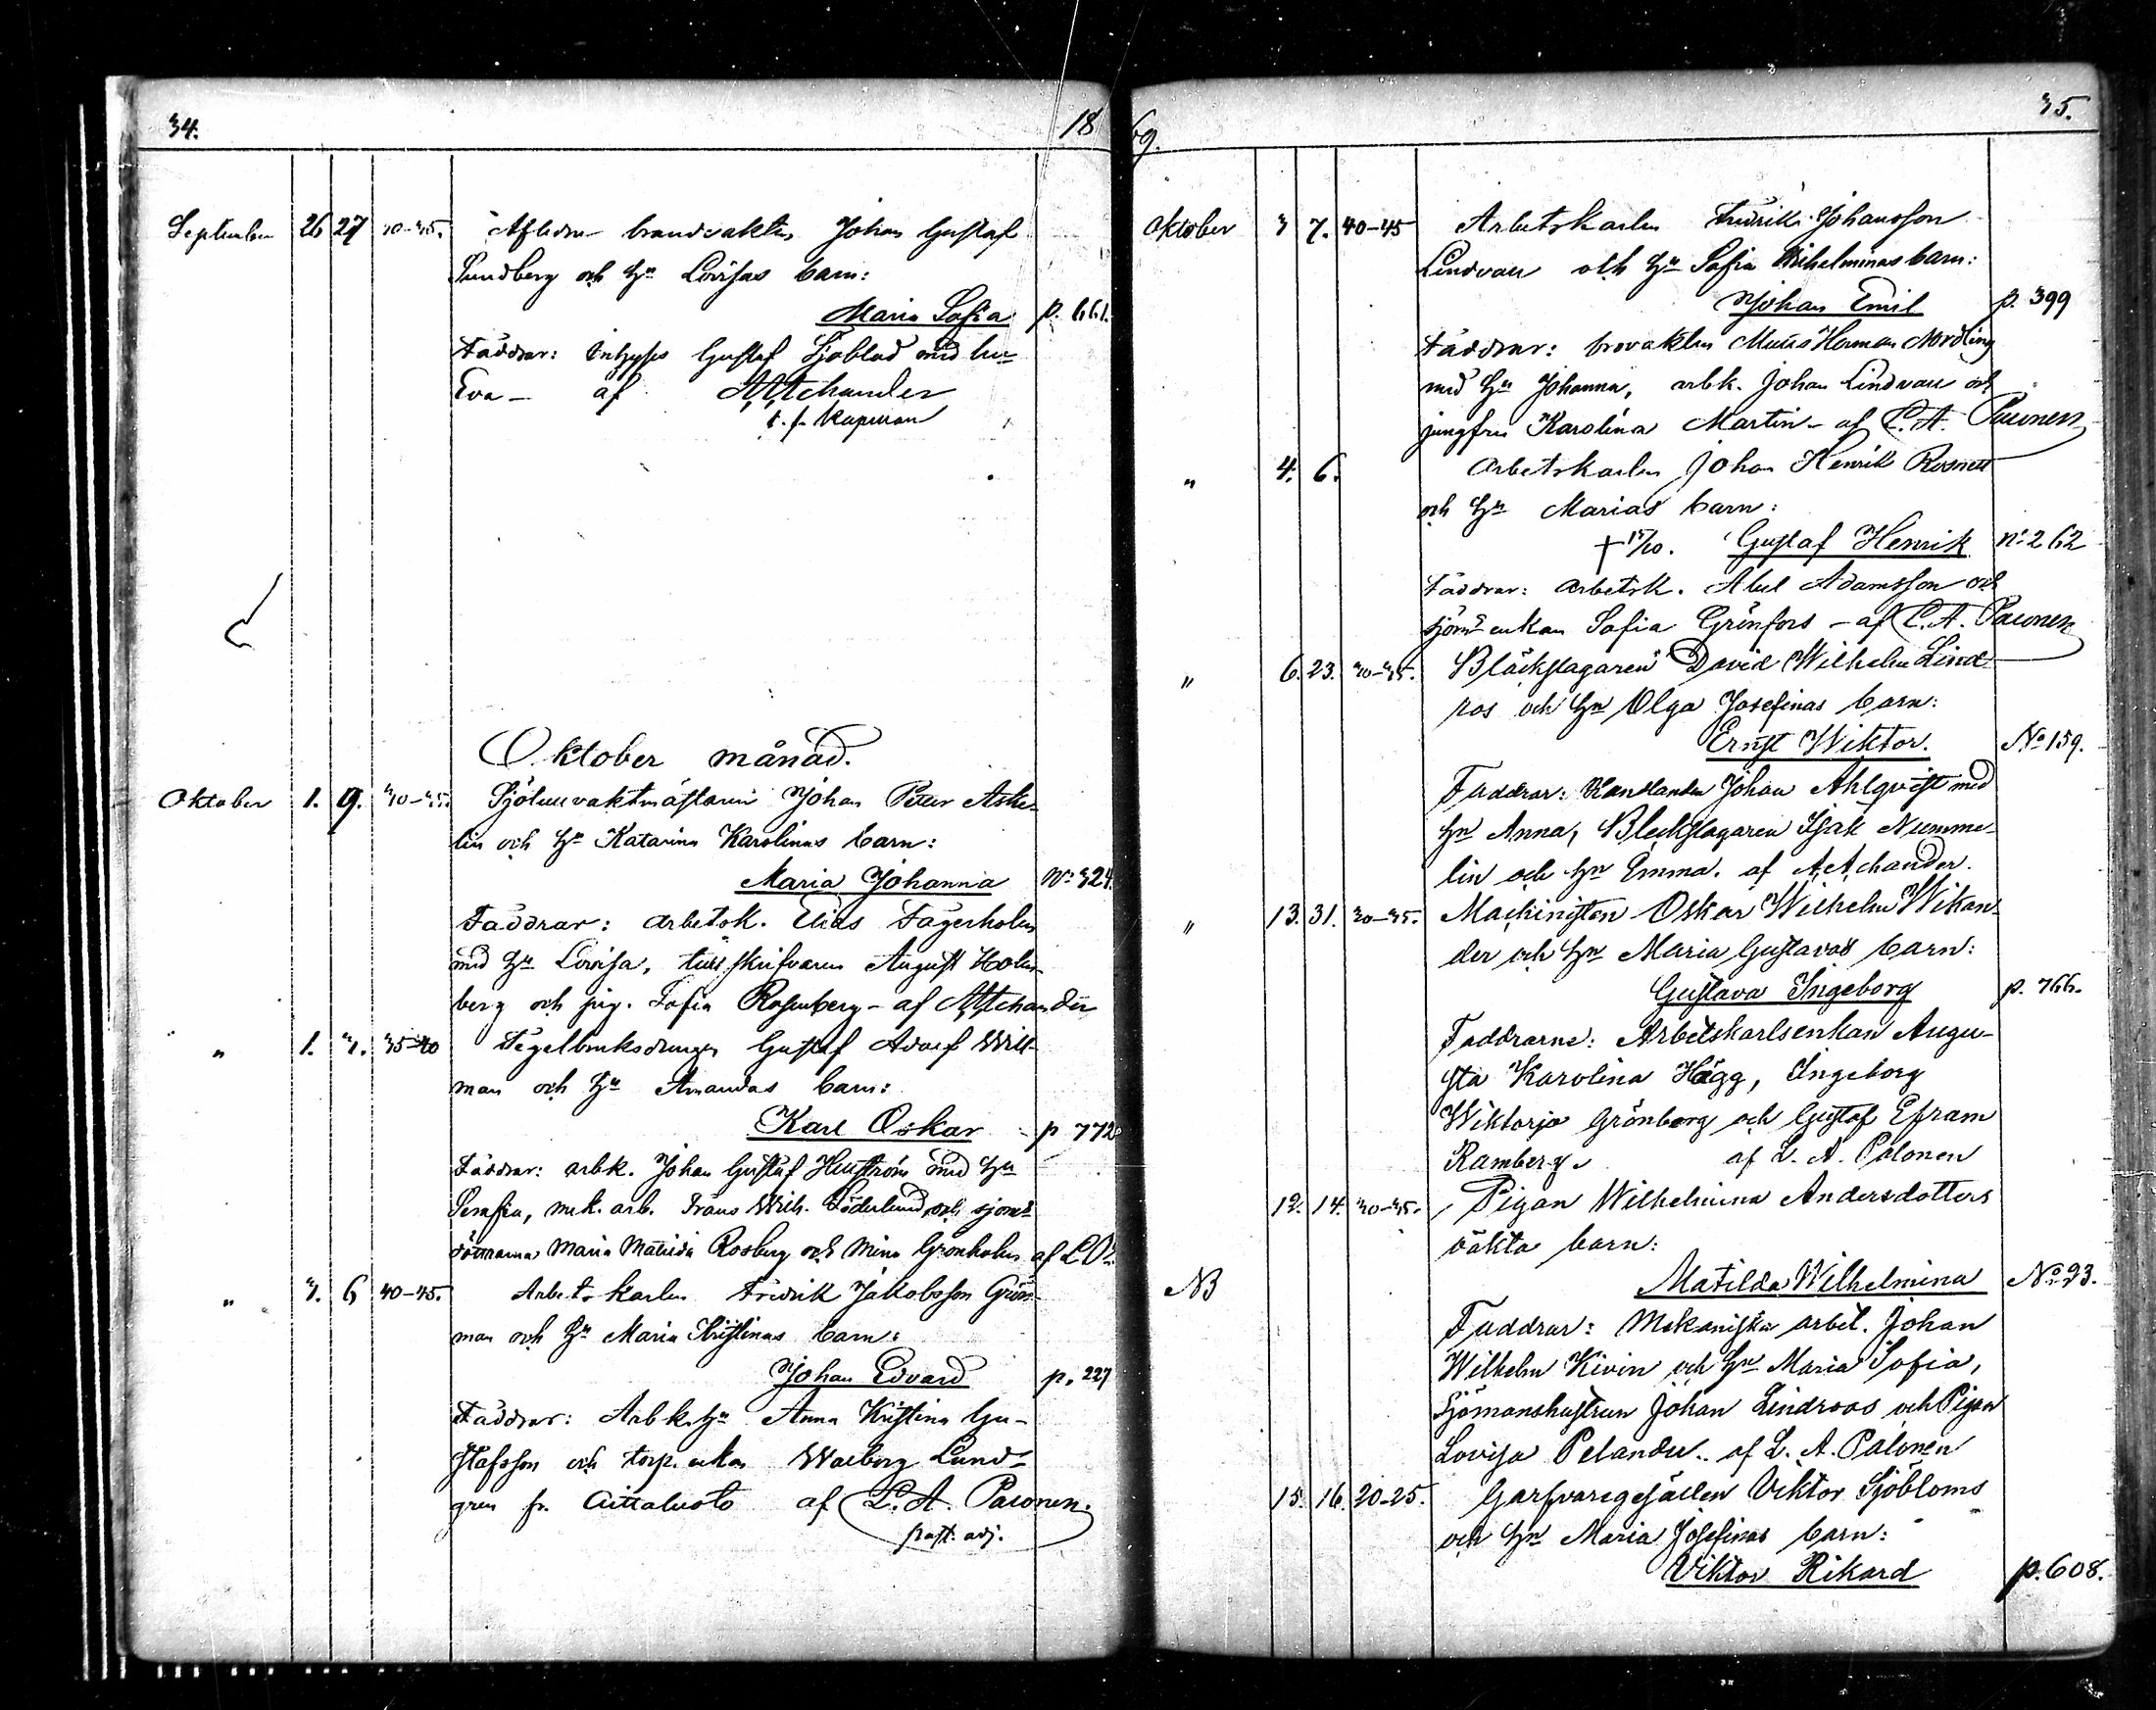 34. 18
September 26 27 30-35. Afledne brandvakten Johan Gustaf
Sundberg och hn Lovisas barn:
Maria Sofia p. 661.
Faddrar: Inhyses Gustaf Sjöblad med hu
Eva - af A. A. Achander
t. f. Kapellan
Oktober månad.
Oktober 1. 9. 30-35. Johan Peter Aske-
lin och hn Katarina Karolinas barn:
Maria Johanna No 324.
Faddrar: arbetsk. Elias Fagerholm
med hn Lovisa, August Holm-
berg och jfg. Sofia Rosenberg - af A. A. Achander
" 1. 3. 35-40 Tegelbruksdrängen Gustaf Adolf Will-
man och hn Amandas barn:
Karl Oskar p 772
Faddrar: arbk. Johan Gustaf Hellström med hn
Serafia, mek. arb. Frans Wilh. Söderlund, och sjöms
döttrarna Maria Matilda Rosberg och Mina Grönholm af
" 3. 6 40-45. Arbetskarlen Fridrik Jakobsson Grön-
man och hn Maria Kristinas barn:
Johan Edvard p. 227
Faddrar: Arbk. hn Anna Kristina Gu-
stafsson och torp. enkan Walborg Lund-
gren fr. Aittaluoto af L. A. Palonen.
past. adj.
69. 35.
Oktober 3 7. 40-45 Arbetskarlen Fredrik Johansson
Lindvall och hn Sofia Wilhelminas barn:
Johan Emil p. 399
Faddrar: brovakten Matts Herman Nordling
med hn Johanna, arbk. Johan Lindvall och
jungfru Karolina Martin - af L. A. Palonen
" 4. 6. Arbetskarlen Johan Henrik Rosnell
och hn Marias barn:
† 17/10. Gustaf Henrik no 262
Faddrar: arbetsk. Abel Adamsson och
sjöms enkan Sofia Grönfors - af L. A. Palonen
" 6. 23. 30-35. Bläckslagaren David Wilhelm Lind-
ros och hn Olga Josefinas barn:
Ernst Wiktor. No 159.
Faddrar: Handlanden Johan Ahlqvist med
hn Anna, Bleckslagaren Isak Numme-
lin och hn Emma. af A. Achander.
" 13. 31. 30-35. Machinisten Oskar Wilhelm Wikan-
der och hn Maria Gustavas barn:
Gustava Ingeborg p. 766.
Faddrarne: Arbetskarlsenkan Augu-
sta Karolina Hägg, Ingeborg
Wiktorja Grönberg och Gustaf Efram
Ramberg. af L. A. Palonen
12. 14. 30-35. Pigan Wilhelmina Andersdotters
oäkta barn:
NB Matilda Wilhelmina No 23.
Faddrar: Mekaniska arbet. Johan
Wilhelm Kivin och hn Maria Sofia,
Sjömanshustrun Johan Lindroos och Pigan
Lovisa Pelander. af L. A. Palonen
15. 16. 20-25. Garfvaregesällen Viktor Sjöbloms
och hn Maria Josefinas barn:
Viktor Rikard p. 608.